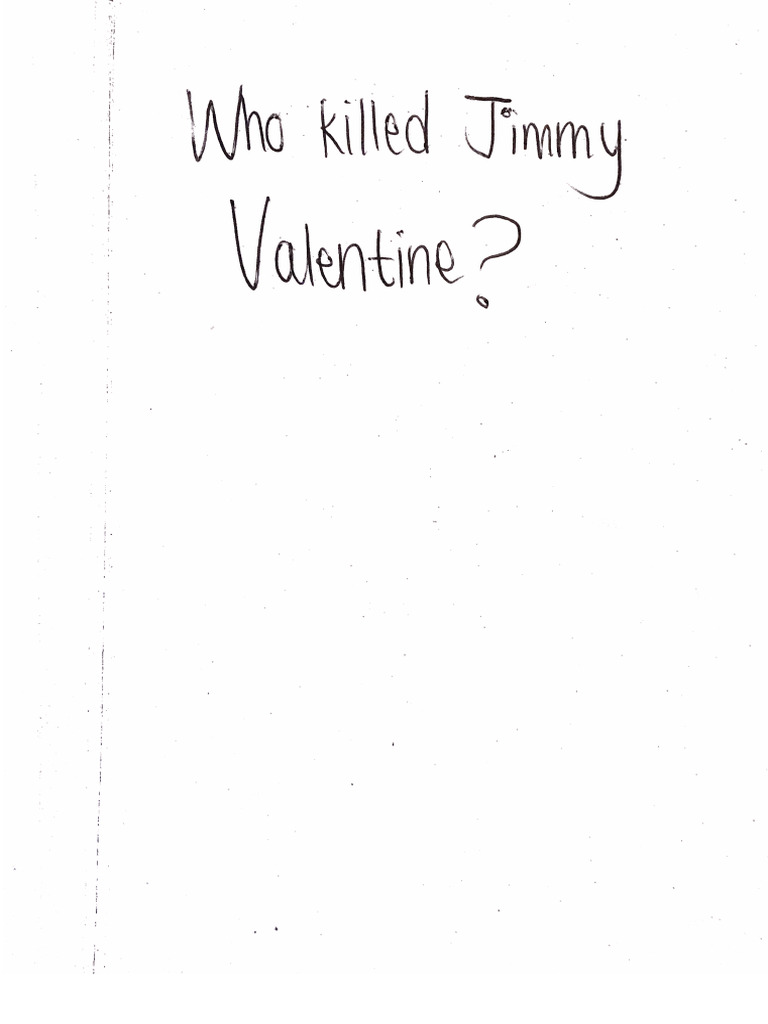 Who killed Jimmy
Valentine?